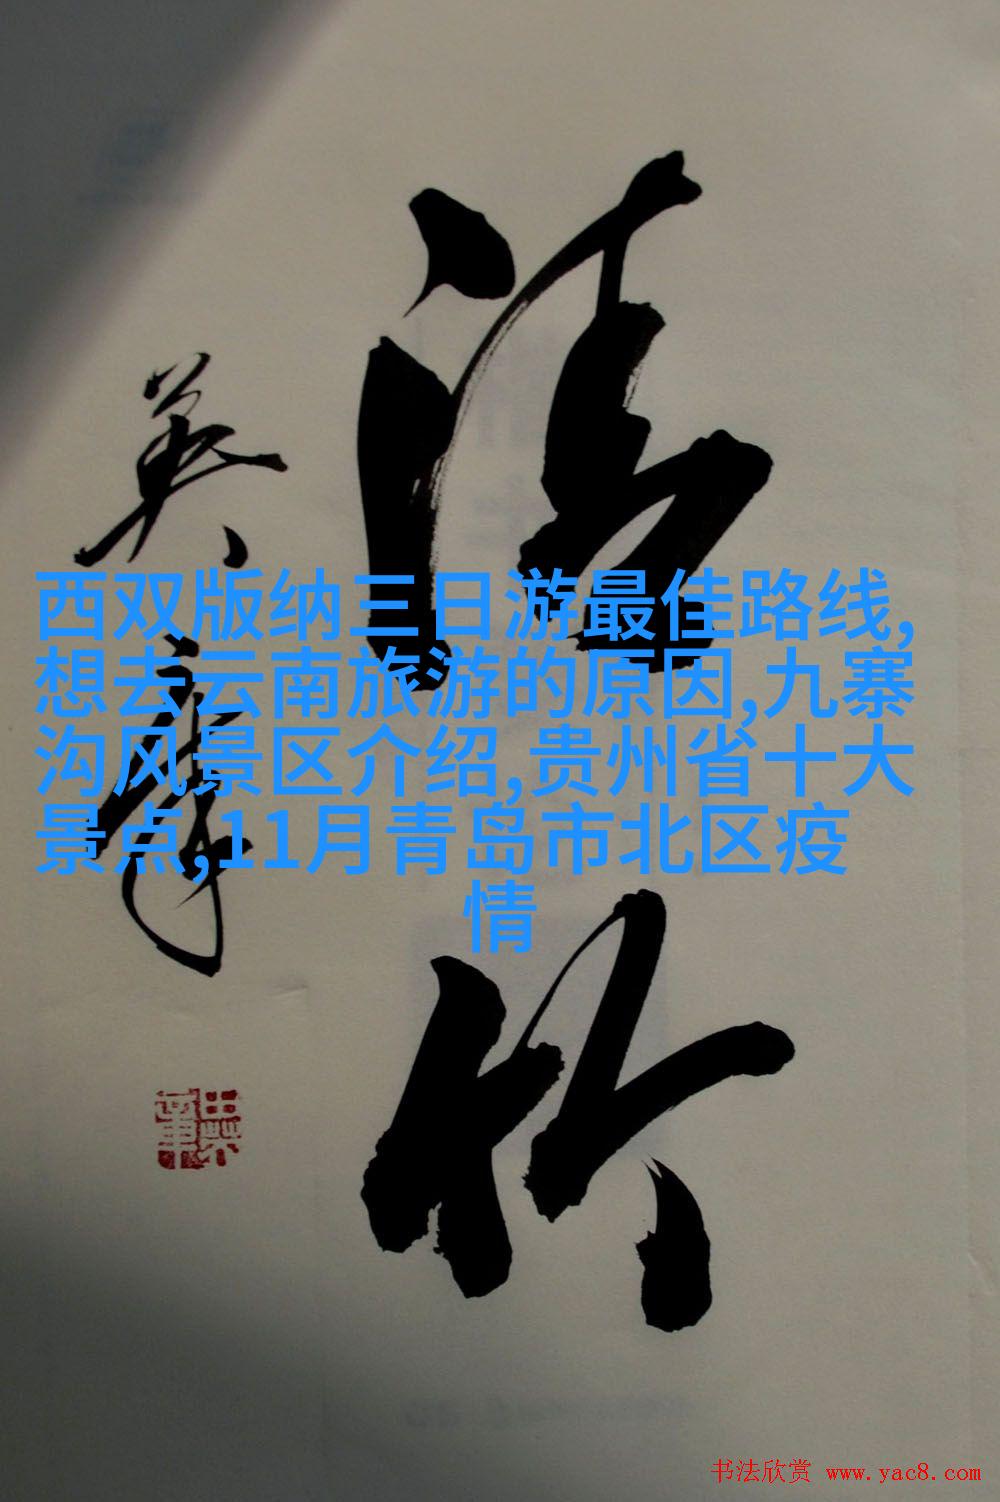 英章
田英章
西双版纳三日游最佳路线,
想去云南旅游的原因,九寨
沟风景区介绍,贵州省十大
景点,11月青岛市北区疫
情
书法欣赏 www.yac8.com